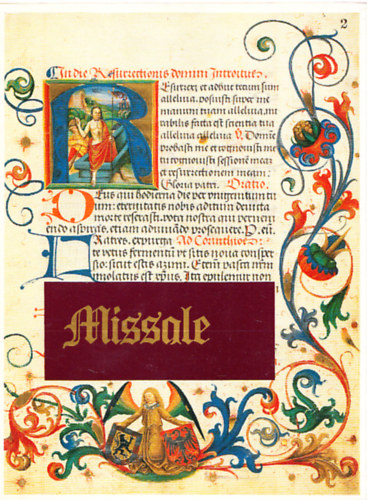 2
In die Resurrectionis domini Introitus.
Resurrexi et adhuc tecum sum
alleluia. posuisti super me
manum tuam alleluia. mi
rabilis facta est scientia tua
alleluia alleluia. V. Domine
probasti me et cognovisti me
tu cognovisti sessionem meam
et resurrectionem meam.
Gloria patri. Oratio.
Deus qui hodierna die per unigenitum tu
um: eternitatis nobis aditum devicta
morte reserasti. vota nostra que preveni
endo aspiras. etiam adiuvando prosequere. P. eu.
Fratres. expurga Ad Corinthios
te vetus fermentum ut sitis nova consper
sio: sicut estis azimi. Etenim pascha nostrum
immolatus est xps. Itaque epulemur non
Missale